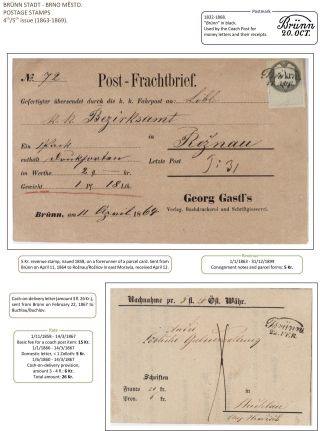 BRÜNN STADT - BRNO MĚSTO.
POSTAGE STAMPS
4th/5th issue (1863-1869).
Postmark
1832-1868.
"Brünn" in black.
Used by the Coach Post for
money letters and their receipts.
Brünn
20. OCT.
No. 72
Post-Frachtbrief.
Gefertigter übersendet durch die k. k. Fahrpost an: Löbl.
k. k. Bezirksamt
in
Rožnau
Ein
enthält
Letzte Post
im Werthe 2
Gewicht 1 18 Lth.
Georg Gastl's
Verlag, Buchdruckerei und Schriftgiesserei.
Brünn, am 11 April 1864
5 Kr. revenue stamp, issued 1859, on a forerunner of a parcel card. Sent from
Brünn on April 11, 1864 to Rožnau/Rožnov in east Moravia, received April 12.
1/1/1863 - 31/12/1899
Consignment notes and parcel forms: 5 Kr.
Cash-on-delivery letter (amount 3 fl. 26 Kr.),
sent from Brünn on February 22, 1867 to
Buchlau/Buchlov.
Rate
1/11/1858 - 14/3/1867
Basic fee for a coach post item: 15 Kr.
1/1/1860 - 14/3/1867
Domestic letter, < 1 Zolloth: 5 Kr.
1/6/1860 - 14/3/1867
Cash-on-delivery provision,
amount 3 - 4 fl.: 6 Kr.
Total amount: 26 Kr.
Nachnahme pr. 3 fl. Öst. Währ.
Brünn
22. FEB.
Schriften
Franco 20 kr.
Prov. 6 kr.
in
Buchlau